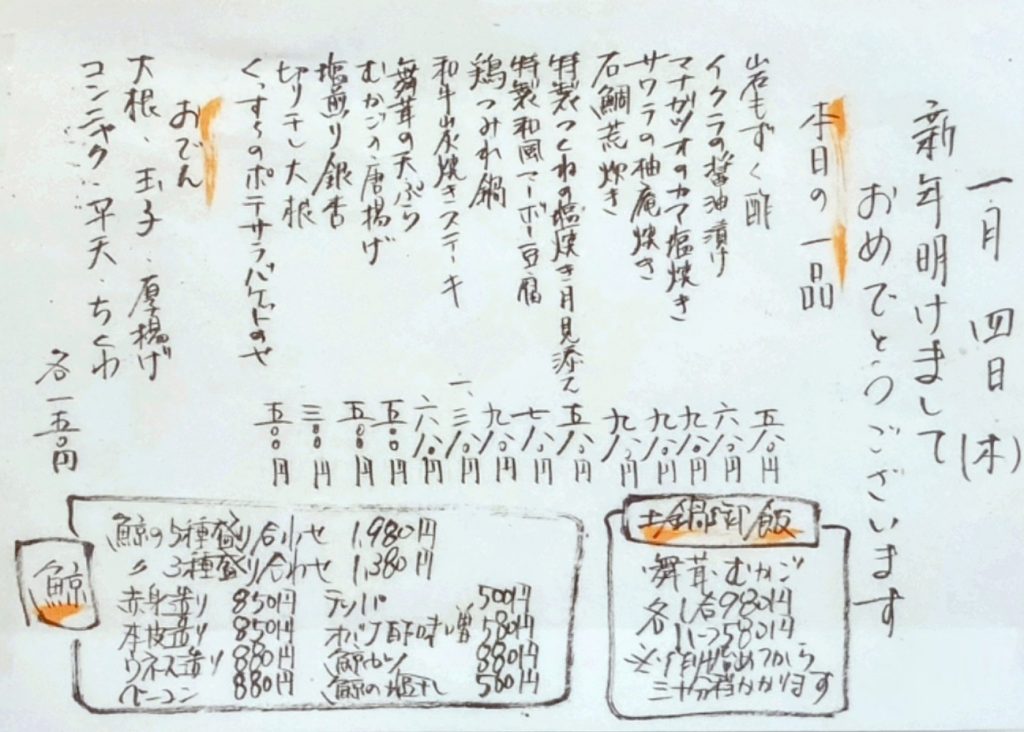 一月 四日(木)
新年明けまして
おめでとうございます
本日の一品
岩もずく酢 五八〇円
イクラの醤油漬け 六八〇円
マナガツオのカマ塩焼き 九八〇円
サワラの柚庵焼き 九八〇円
石鯛荒炊き 九八〇円
特製つくねの塩焼き月見添え 五八〇円
特製和風マーボー豆腐 七八〇円
鶏つみれ鍋 九八〇円
和牛炭焼きステーキ 一、三八〇円
舞茸の天ぷら 六八〇円
むかごの唐揚げ 五〇〇円
塩煎り銀杏 五〇〇円
切り干し大根 三〇〇円
ポテサラバケットのせ 五〇〇円
おでん
大根、玉子、厚揚げ
コンニャク、平天、ちくわ
各一五〇円
土鍋御飯
舞茸、むかご
各1合980円
ハーフ580円
三十分程かかります
鯨
鯨の5種盛り合わせ 1,980円
〃 3種盛り合わせ 1,380円
赤身造り 850円
本皮造り 850円
ウネス造り 880円
ベーコン 880円
テッパ 500円
オバケ酢味噌 580円
鯨カツ 880円
鯨の 580円